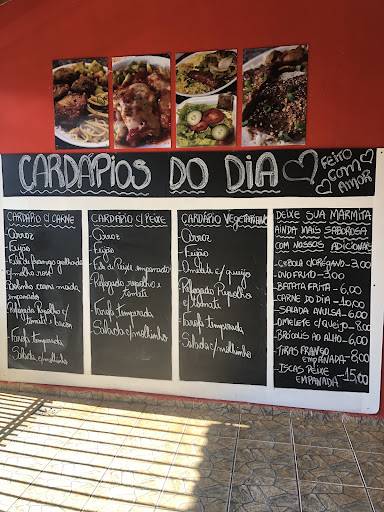 CARDÁPIOS DO DIA
FEITO
COM
AMOR
CARDÁPIO C/ CARNE
- Arroz
- Feijão
- Filé de frango grelhado
c/ molho rosê
- Bolinho carne moída
empanado
- Refogado Repolho c/
tomate e bacon
- Farofa temperada
- Salada c/ molhinho
CARDÁPIO C/ PEIXE
- Arroz
- Feijão
- Filé de Peixe empanado
- Refogado repolho c/
tomate
- Farofa Temperada
- Salada c/ molhinho
CARDÁPIO VEGETARIANO
- Arroz
- Feijão
- Omelete c/ queijo
- Refogado Repolho
c/ tomate
- Farofa temperada
- Salada c/ molhinho
DEIXE SUA MARMITA
AINDA MAIS SABOROSA
COM NOSSOS ADICIONAIS
- OVO FRITO - 3,00
- BATATA FRITA - 6,00
- CARNE DO DIA - 10,00
- SALADA AVULSA - 6,00
- OMELETE C/ QUEIJO - 8,00
- BRÓCOLIS AO ALHO - 6,00
- TIRAS FRANGO
EMPANADA - 8,00
- ISCAS PEIXE - 15,00
EMPANADA